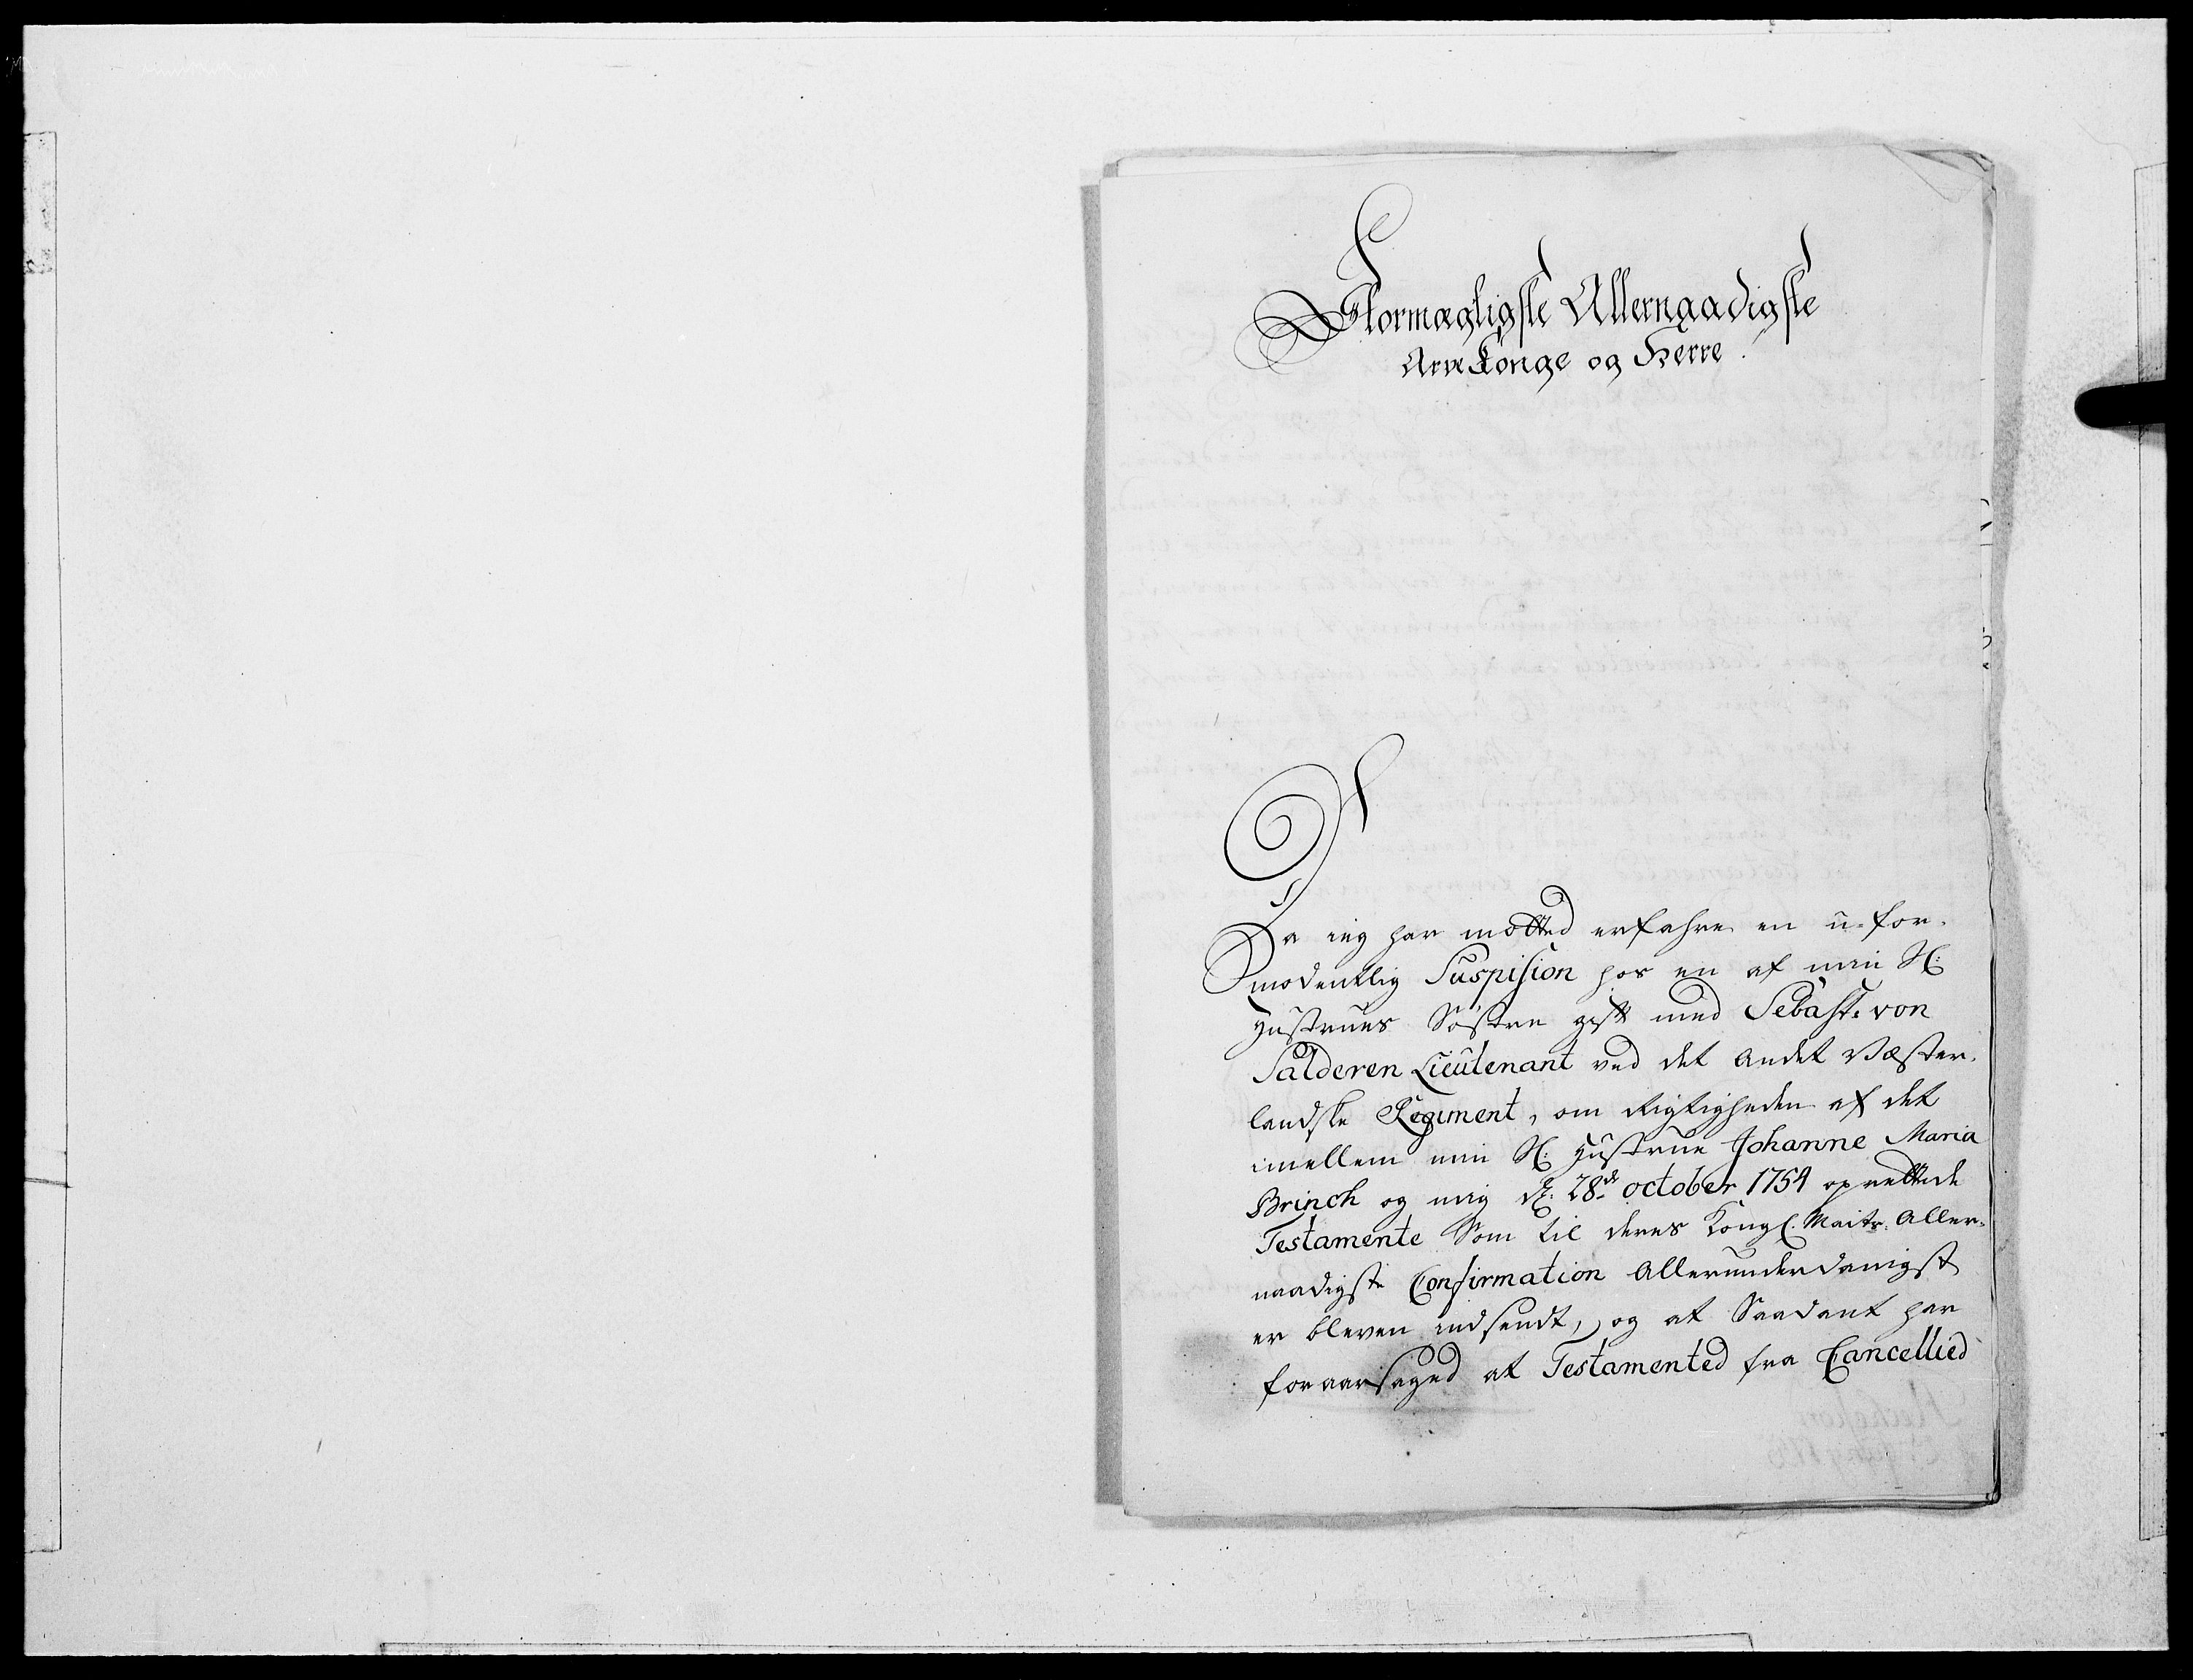 Stormægtigste Allernaadigste
Arve Konge og Herre
Da ieg har mötted erfahre en u-for-
modentlig Suspision hos en af min Sl:
Hustrues Söstre gift med Sebast: von
Salderen Lieutenant ved det Andet Væster-
landske Regiment, om Rigtigheden af det
imellem min Sl: Hustrue Johanne Maria
Brinch og mig d: 28de october 1754 oprettede
Testamente Som til deres Kongl. Maits. Aller-
naadigste Confirmation Allerunderdanigst
er bleven indsendt, og at Saadant har
foraarsaged at Testamented fra Cancellied